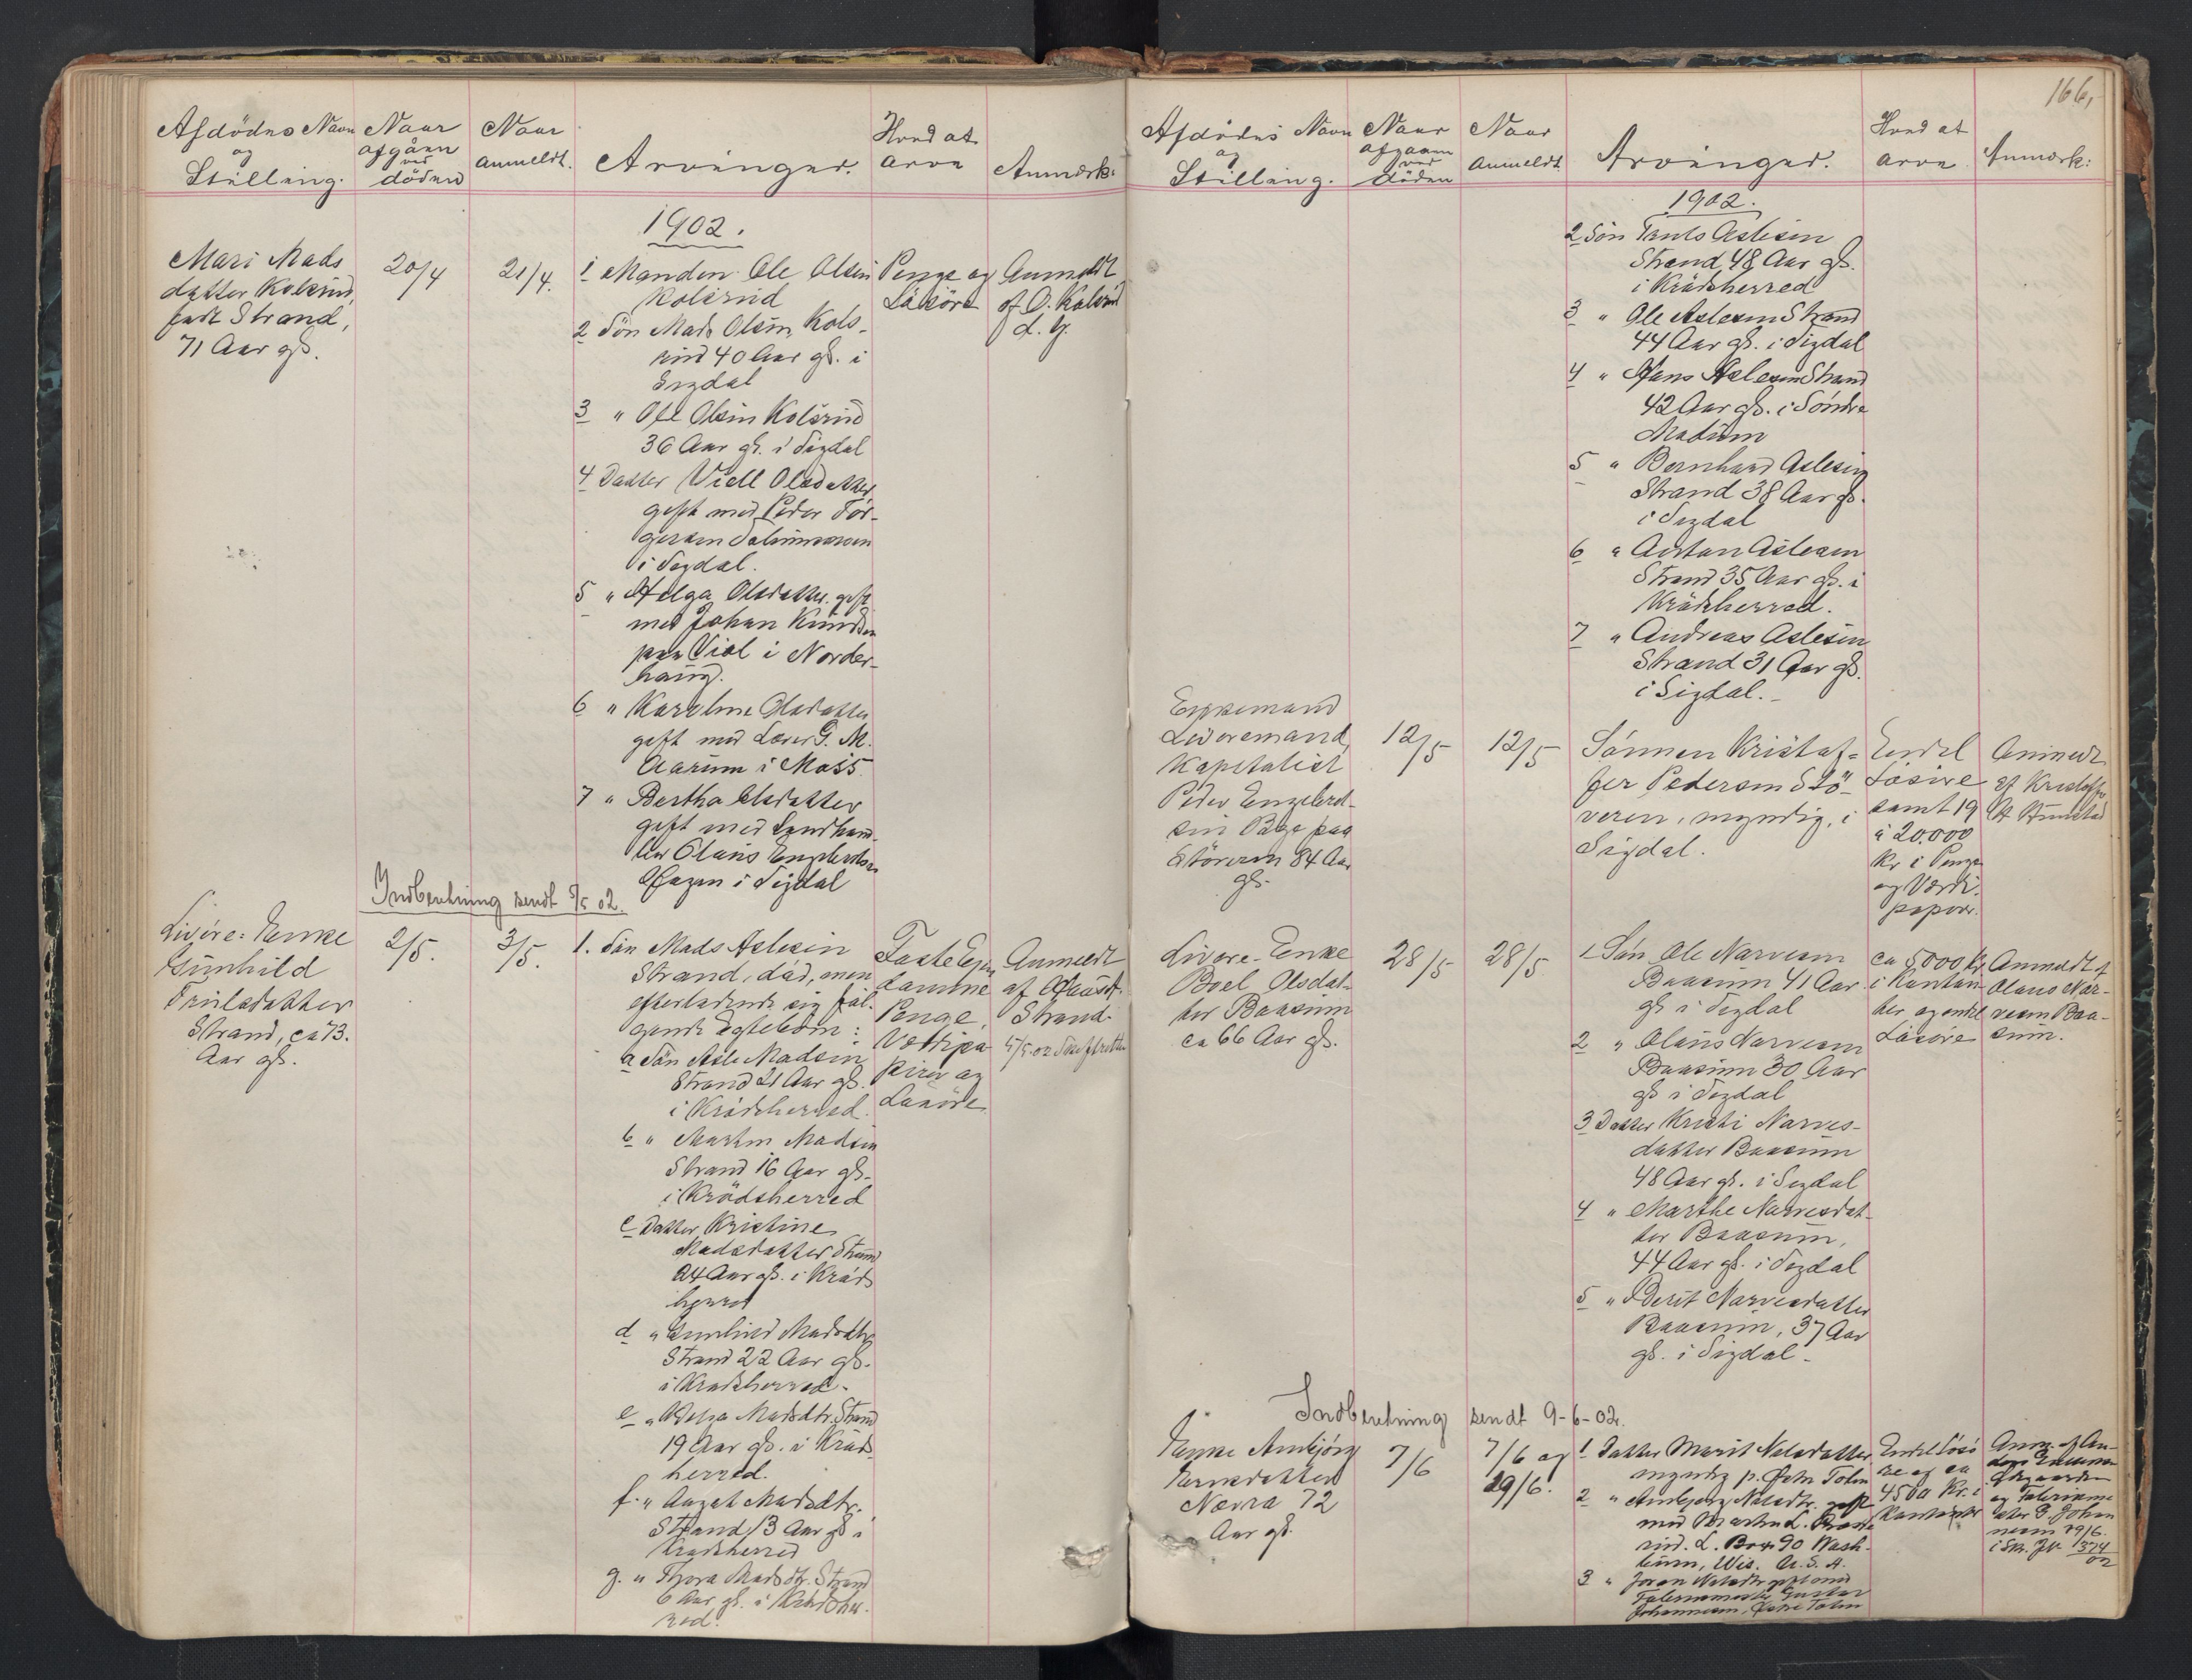 Afdödes Navn
og
Stilling.
Naar
afgåen
ved
döden
Naar
anmeldt.
Arvinger.
Hvad at
arve
Anmærk:
1902.
Mari Mads
datter Kolsrud,
født Strand,
71 Aar gl.
20/4
21/4.
1 Manden Ole Olsen
Kolsrud
2 Sön Mads Olsen Kols-
rud 40 Aar gl. i
Sigdal
3 " Ole Olsen Kolsrud
36 Aar gl. i Sigdal
4 Datter Olsdatter
gift med Peder Tor-
gersen
i Sigdal.
5 " Helga Olsdatter gift
med Johan Knudsen
paa Viol i Norder-
haug.
6 " Karoline Olsdatter
gift med Lærer G. M.
Aarum i Moss.
7 " Bertha Olsdatter
gift med Landhand-
ler Olaus Engebretsen
Hagen i Sigdal
Penge og
Lösöre
Anmeldt
af O. Kolsrud
d. y.
Indberetning sendt 3/5 02.
Livöre-Enke
Gunhild
Trulsdatter
Strand, ca 73.
Aar gl.
2/5.
3/5.
1. Sön Mads Aslesen
Strand, död, men
efterladende sig föl-
gende Egtebörn:
a Sön Asle Madsen
Strand 21 Aar gl.
i Krödsherred.
b " Martin Madsen
Strand 16 Aar gl.
i Krödsherred
c Datter Kristine
Madsdatter Strand
24 Aar gl. i Kröds
herred
d " Gunhild Madsdtr
Strand 22 Aar gl.
i Krödsherred.
e " Helga Madsdtr. Strand
19 Aar gl. i Kröds
herred.
f. " Aagot Madsdtr.
Strand 13 Aar gl i
Krödsherred
g. " Thora Madsdtr. Strand
6 Aar gl. i Krödsher-
red.
Faste Eien
domme
Penge,
Værdipa-
pirer og
Lösöre
Anmeldt
af
Strand.
5/5.02
166,
Afdödes Navn
og
Stilling.
Naar
afgaaen
ved
döden
Naar
Anmeldt
Arvinger.
Hvad at
arve
Anmærk:
1902.
2 Sön Truls Aslesen
Strand, 48 Aar gl.
i Krödsherred
3 " Ole Aslesen Strand
44 Aar gl. i Sigdal
4 " Hans Aslesen Strand
42 Aar gl. i Söndre
Modum
5 " Bernhard Aslesen
Strand 38 Aar gl.
i Sigdal
6 " Anton Aslesen
Strand 35 Aar gl. i
Krödsherred.
7 " Andreas Aslesen
Strand 31 Aar gl.
i Sigdal.-
Enkemand
Livöremand,
Kapitalist
Peder Engebret-
sen paa
Stöveren 84 Aar
gl.
12/5
12/5
Sönnen Kristof-
fer Pedersen Stö-
veren, myndig, i
Sigdal.
Endel
Lösöre
samt 19
à 20.000
Kr i Penge
og Værdi-
papirer.
Anmeldt
af Kristoffer
Livöre-Enke
Boel Olsdat-
ter Baasum
ca 66 Aar gl.
28/5
28/5
1 Sön Ole Narvesen
Baasum 41 Aar
gl i Sigdal
2 " Olaus Narvesen
Baasum 30 Aar
gl i Sigdal
3 Datter Kristi Narves-
datter Baasum
48 Aar gl. i Sigdal
4 " Marthe Narvesdat-
ter Baasum,
44 Aar gl. i Sigdal
5 " Berit Narvesdatter
Baasum, 37 Aar
gl. i Sigdal.
ca 5000 Kr
i Kontan-
ter og endel
Lösöre
Anmeldt af
Olaus Nar-
vesen Baa-
sum.
Indberetning sendt 9-6-02.
Enke Ambjörg
Nerra 72
Aar gl.
7/6
7/6 og
29/6.
1 Datter Marit Nilsdatter
myndig p.
2 " Ambjörg Nilsdtr. gift
med Martin L.
rud. L. Box 90 Wash-
burn, Wis. U.S.A.
3 " Joran Nilsdtr gift med
Gustav
Johannesen,
Endel Lösö
re og ca
4500 Kr. i
Kontanter
Anm. af An-
ders
og
G. Johan
nesen 29/6.
374
02